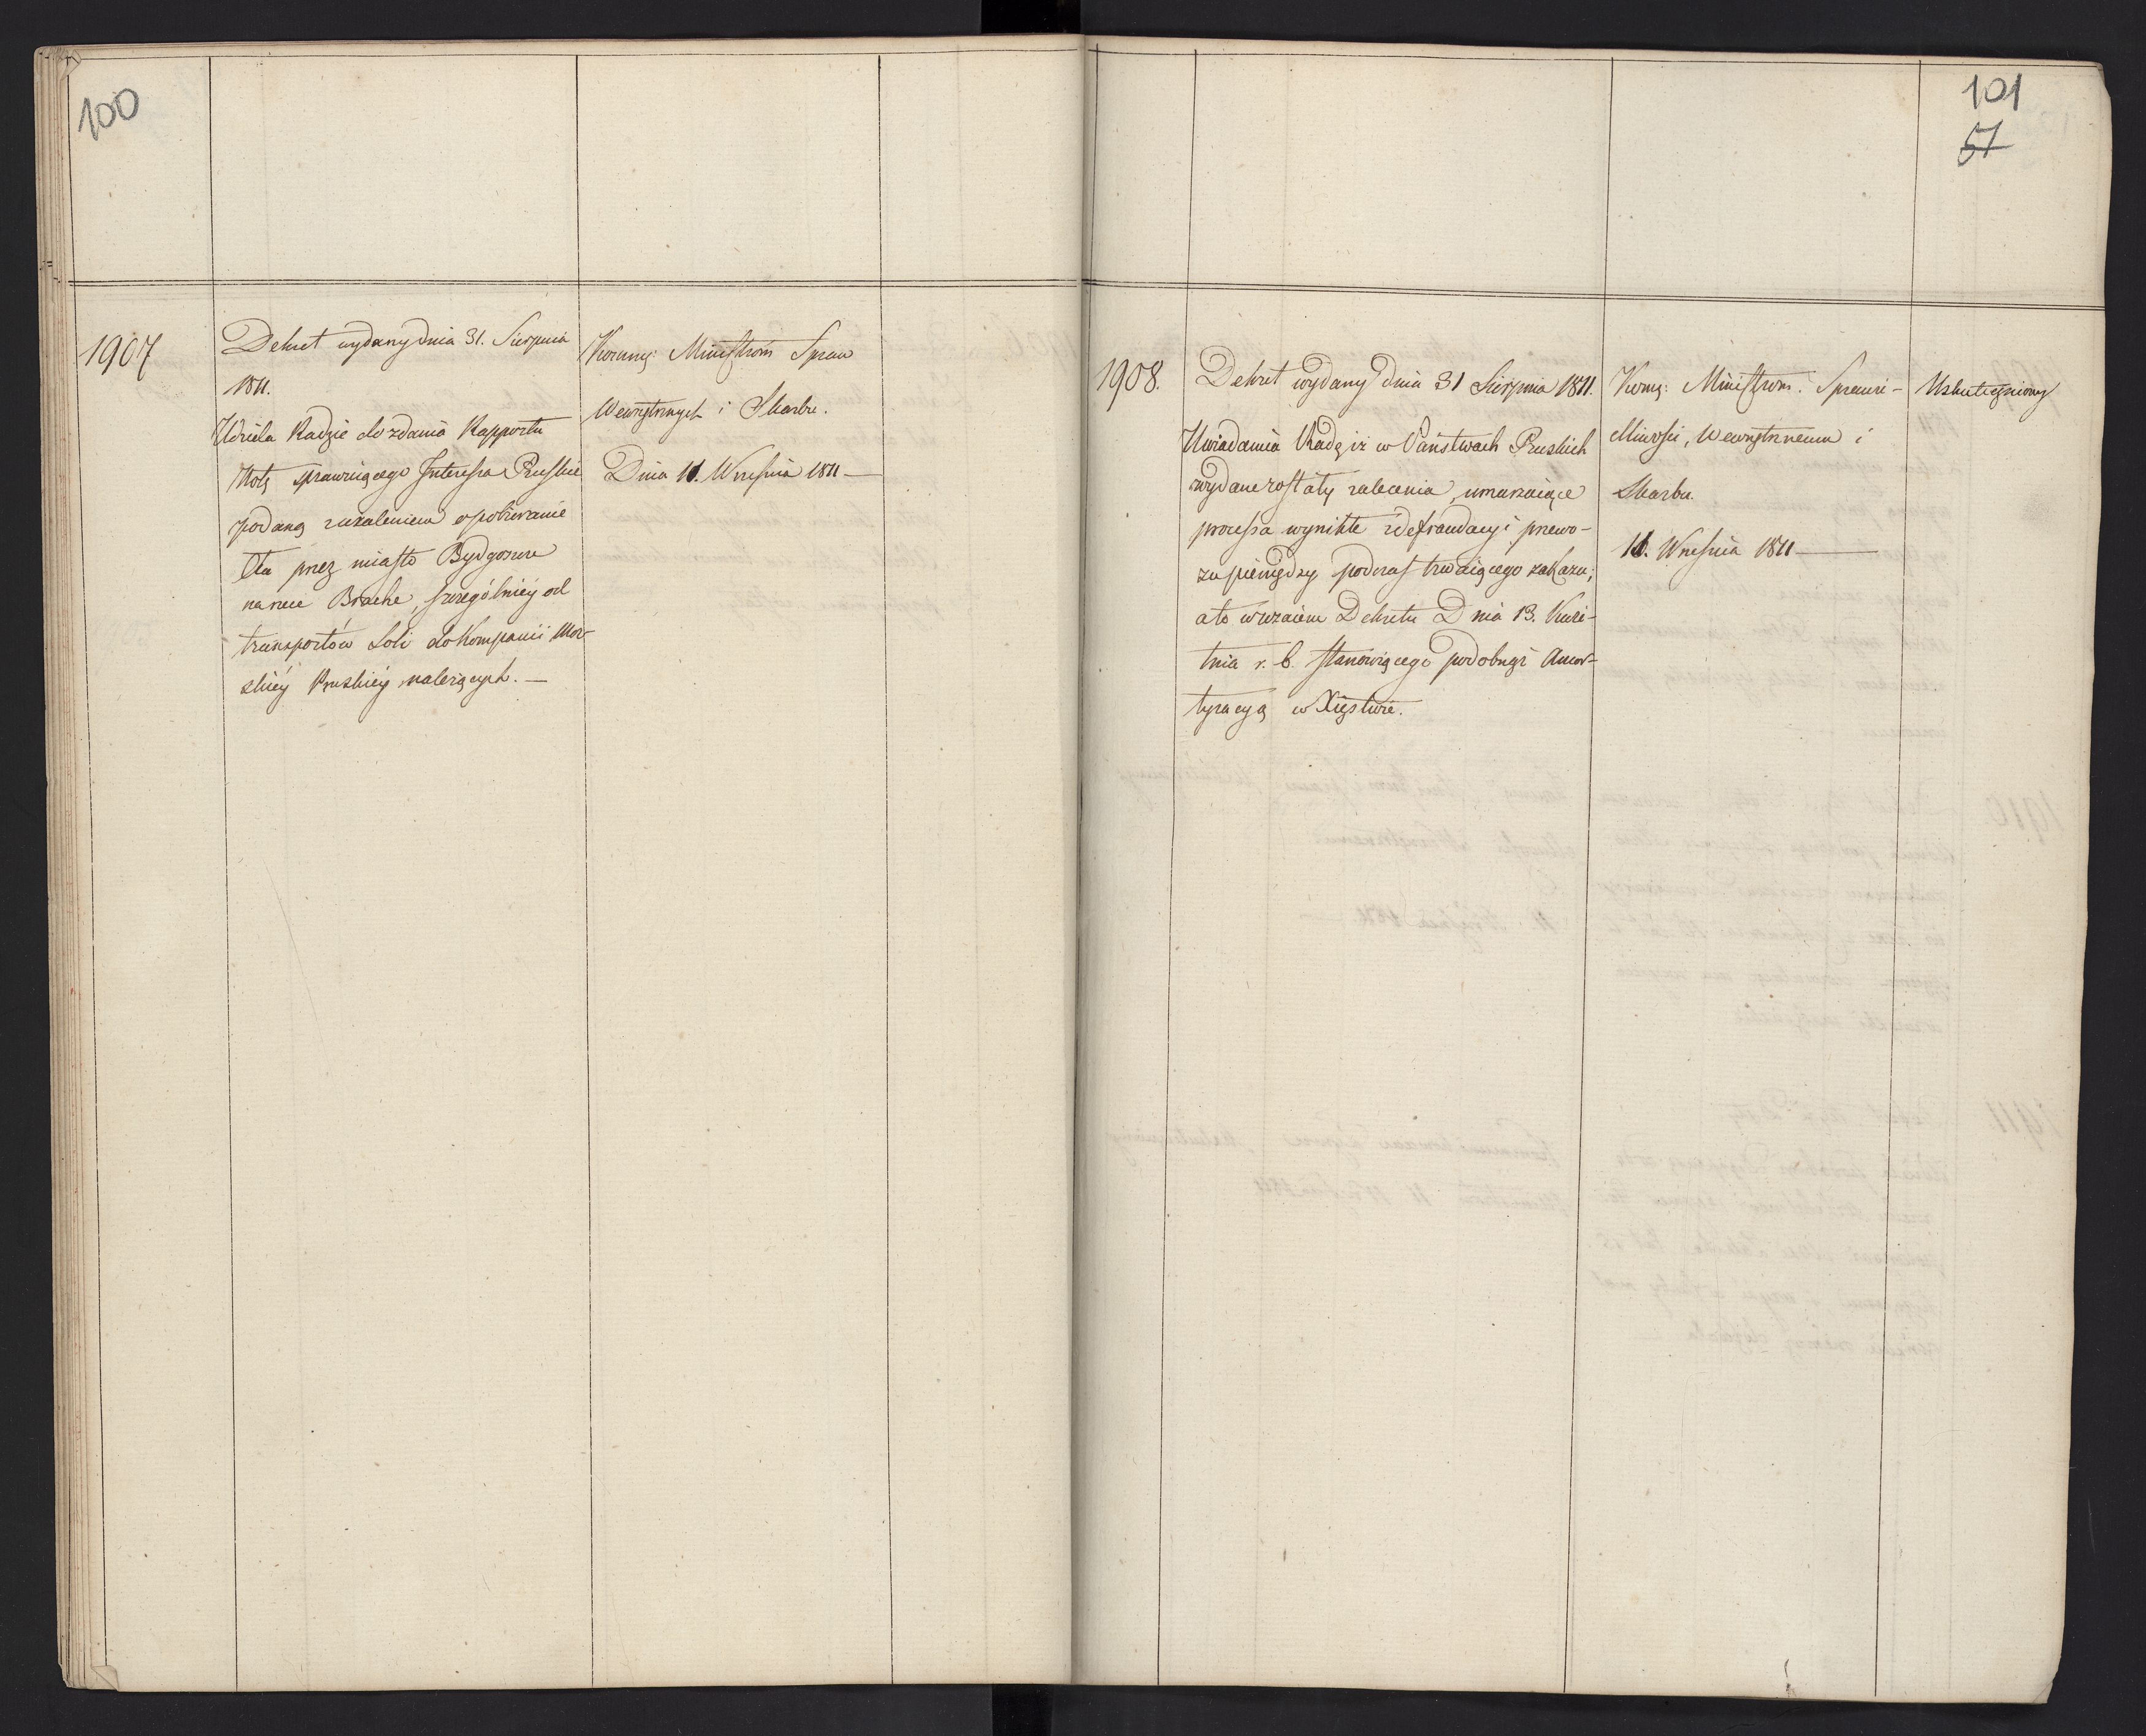 100
1907
Dekret wydany dnia 31. Sierpnia
1811.
Udziela Radzie do zdania Rapportu
Notę sprawuiącego Interessa Pruskie
podaną zużaleniem o pobieranie
Cła przez miasto Bydgoszcz
na rzece Brache, szczególniey od
transportów Soli do Kompanii Mor-
skiéy Pruskiéy należących. —
Kommu: Ministróm Spraw
Wewnętrznych i Skarbu.
Dnia 11. Września 1811 —
101
57
1908.
Dekret wydany dnia 31 Sierpnia 1811.
Uwiadamia Radę iż w Państwach Pruskich
wydane zostały zalecenia, umarzaiące
processa wynikłe z defraudacyi przewo-
zu pieniędzy podczas trwaiącego zakazu;
a to wzaiem Dekretu Dnia 13. Kwie-
tnia r. b. stanowiącego podobnąż Amor-
tyzacyą w Xięstwie.
Komu: Ministrom: Sprawie-
dliwości, Wewnętrznemu i
Skarbu.
11. Września 1811 —
Uskuteczniony